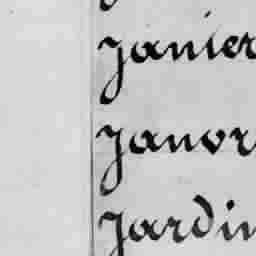 janier
janvr
jardin